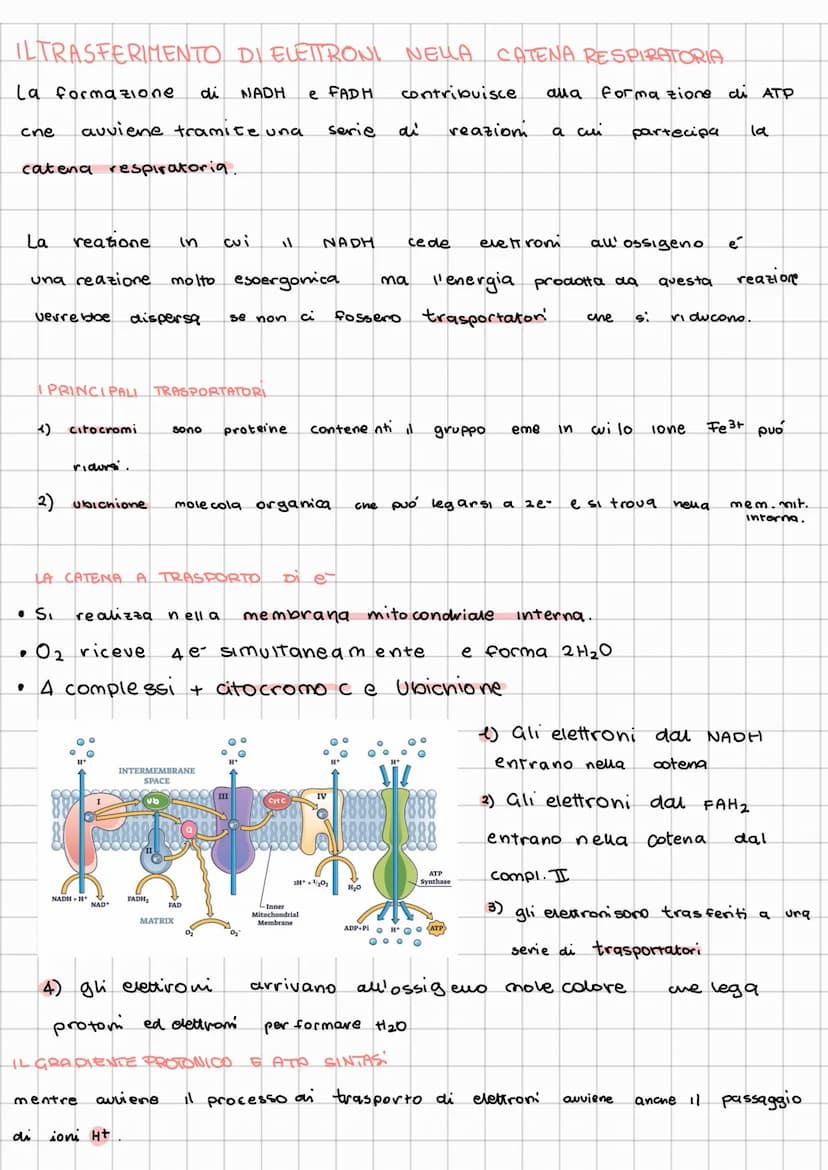 IL TRASFERIMENTO DI ELETTRONI NELLA CATENA RESPIRATORIA
La formazione di NADH e FADH contribuisce alla formazione di ATP
che avviene tramite una serie di reazioni a cui partecipa la
catena respiratoria.
La reazione in cui il NADH cede elettroni all'ossigeno é
una reazione molto esoergonica ma l'energia prodotta da questa reazione
verrebbe dispersa se non ci fossero trasportatori che si riducono.
I PRINCIPALI TRASPORTATORI
1) citocromi sono proteine contenenti il gruppo eme in cui lo ione Fe3+ puó
ridursi.
2) ubichione molecola organica che puó legarsi a 2e- e si trova nella mem. mit.
interna.
LA CATENA A TRASPORTO Di e-
• Si realizza nella membrana mitocondriale interna.
• O2 riceve 4e- simultaneamente e forma 2H2O
• 4 complessi + citocromo c e Ubichione
1) Gli elettroni dal NADH
entrano nella catena
2) Gli elettroni dal FAH2
entrano nella catena dal
compl. II
3) gli elettroni sono trasferiti a una
serie di trasportatori
H+ H+ H+ H+
INTERMEMBRANE
SPACE
I Ub III Cyt C IV
Q
II
NADH + H+ NAD+
FADH2 FAD
MATRIX
O2 O2-
Inner
Mitochondrial
Membrane
2H+ + 1/2O2 H2O
ATP
Synthase
ADP+Pi H+ ATP
4) gli elettroni arrivano all'ossigeno molecolore che lega
protoni ed elettroni per formare H2O
IL GRADIENTE PROTONICO E ATP SINTASi
mentre avviene il processo di trasporto di elettroni avviene anche il passaggio
di ioni H+.